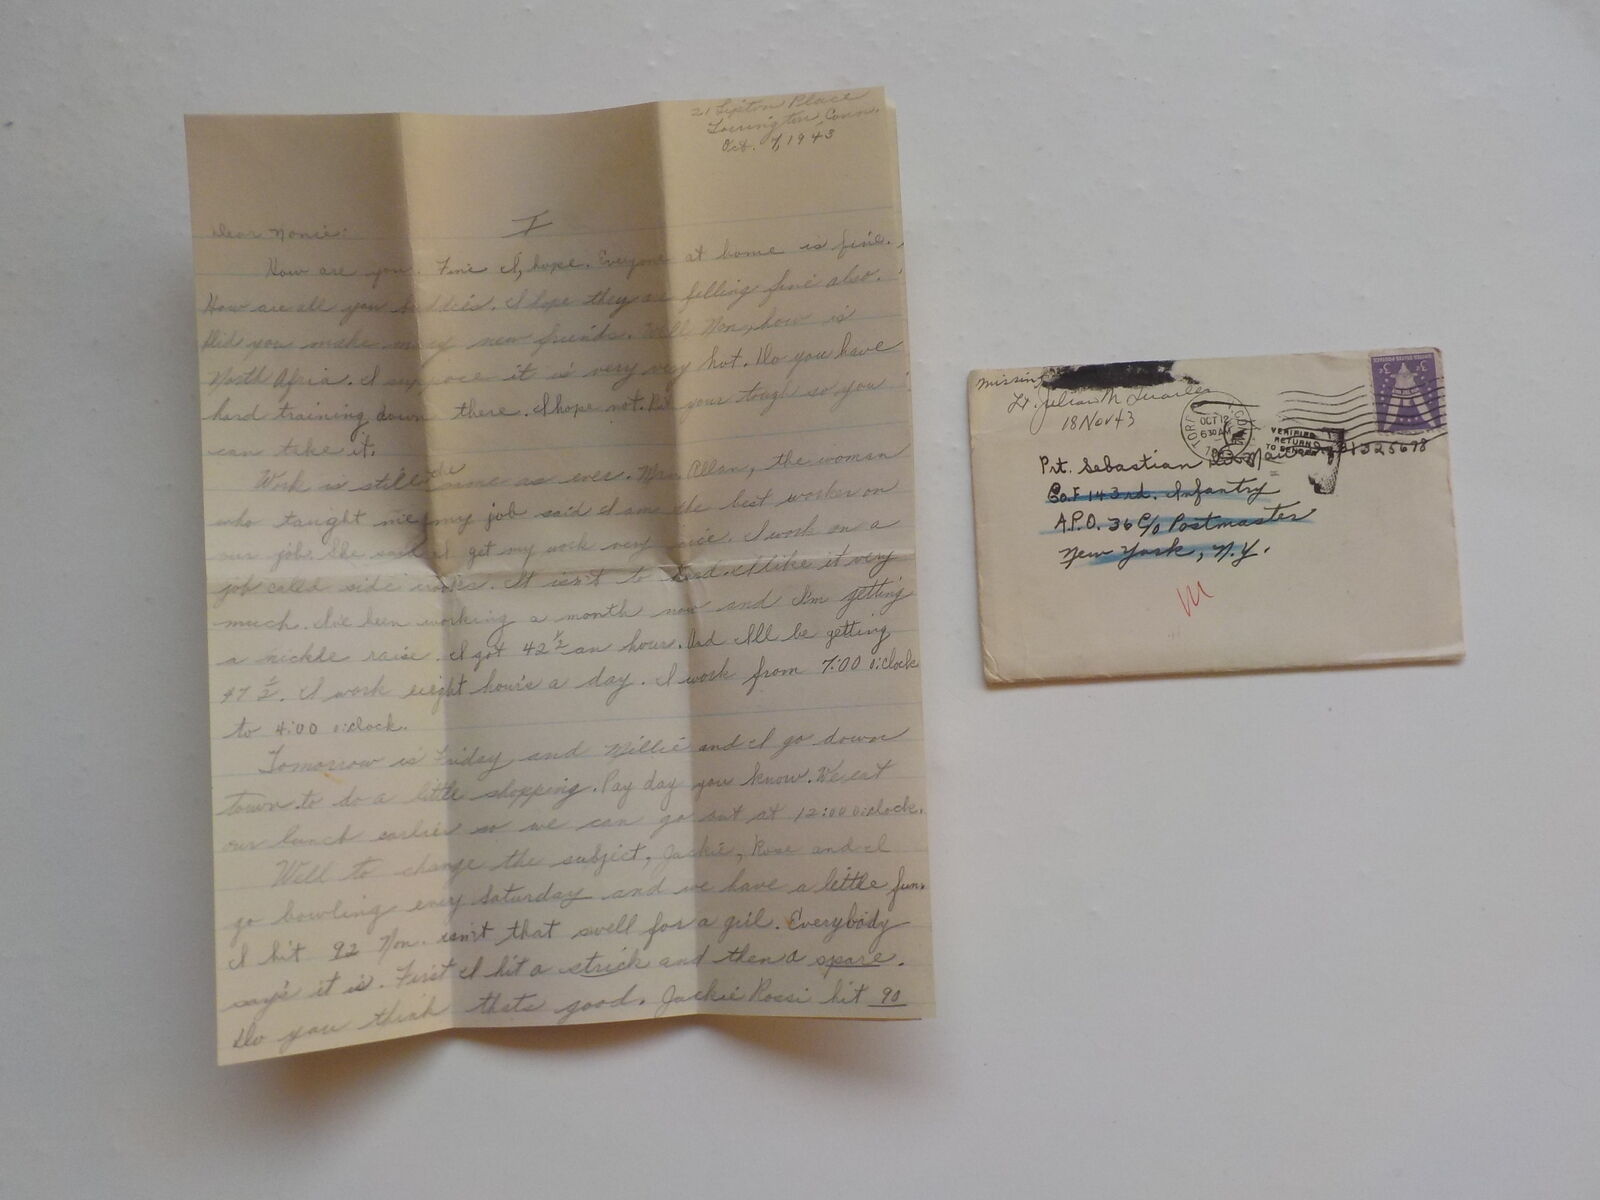 21 Lipton Place
Torrington, Conn.
Oct. 7, 1943
I
Dear Nonie:
How are you. Fine I, hope. Everyone at home is fine.
How are all you buddies. I hope they are felling fine also.
Did you make many new friends. Well Non, how is
North Africa. I suppose it is very very hot. Do you have
hard training down there. I hope not. But your tough so you
can take it.
Work is still the same as ever. Mrs. Allan, the woman
who taught me my job said I am the best worker on
our job. She said I get my work very nice. I work on a
job called side hooks. It isn't to hard. I like it very
much. I've been working a month now and I'm getting
a nickle raise. I got 42 1/2 an hour. And I'll be getting
47 1/2. I work eight hours a day. I work from 7:00 o'clock
to 4:00 o'clock.
Tomorrow is Friday and Millie and I go down
town to do a little shopping. Pay day you know. We eat
our lunch earlier so we can go out at 12:00 o'clock.
Well to change the subject, Jackie, Rose and I
go bowling every Saturday and we have a little fun.
I hit 92 Non. isn't that swell for a girl. Everybody
say's it is. First I hit a strick and then a spare.
Do you think thats good. Jackie Rossi hit 90
missing
Lt. Julian M
18 Nov 43
OCT 12
630 AM
VERIFIED
RETURN
TO SENDER
UNITED STATES POSTAGE
3¢ 3¢
Pvt. Sebastian 31325678
Co. F 143rd. Infantry
A.P.O. 36 c/o Postmaster
New York, N.Y.